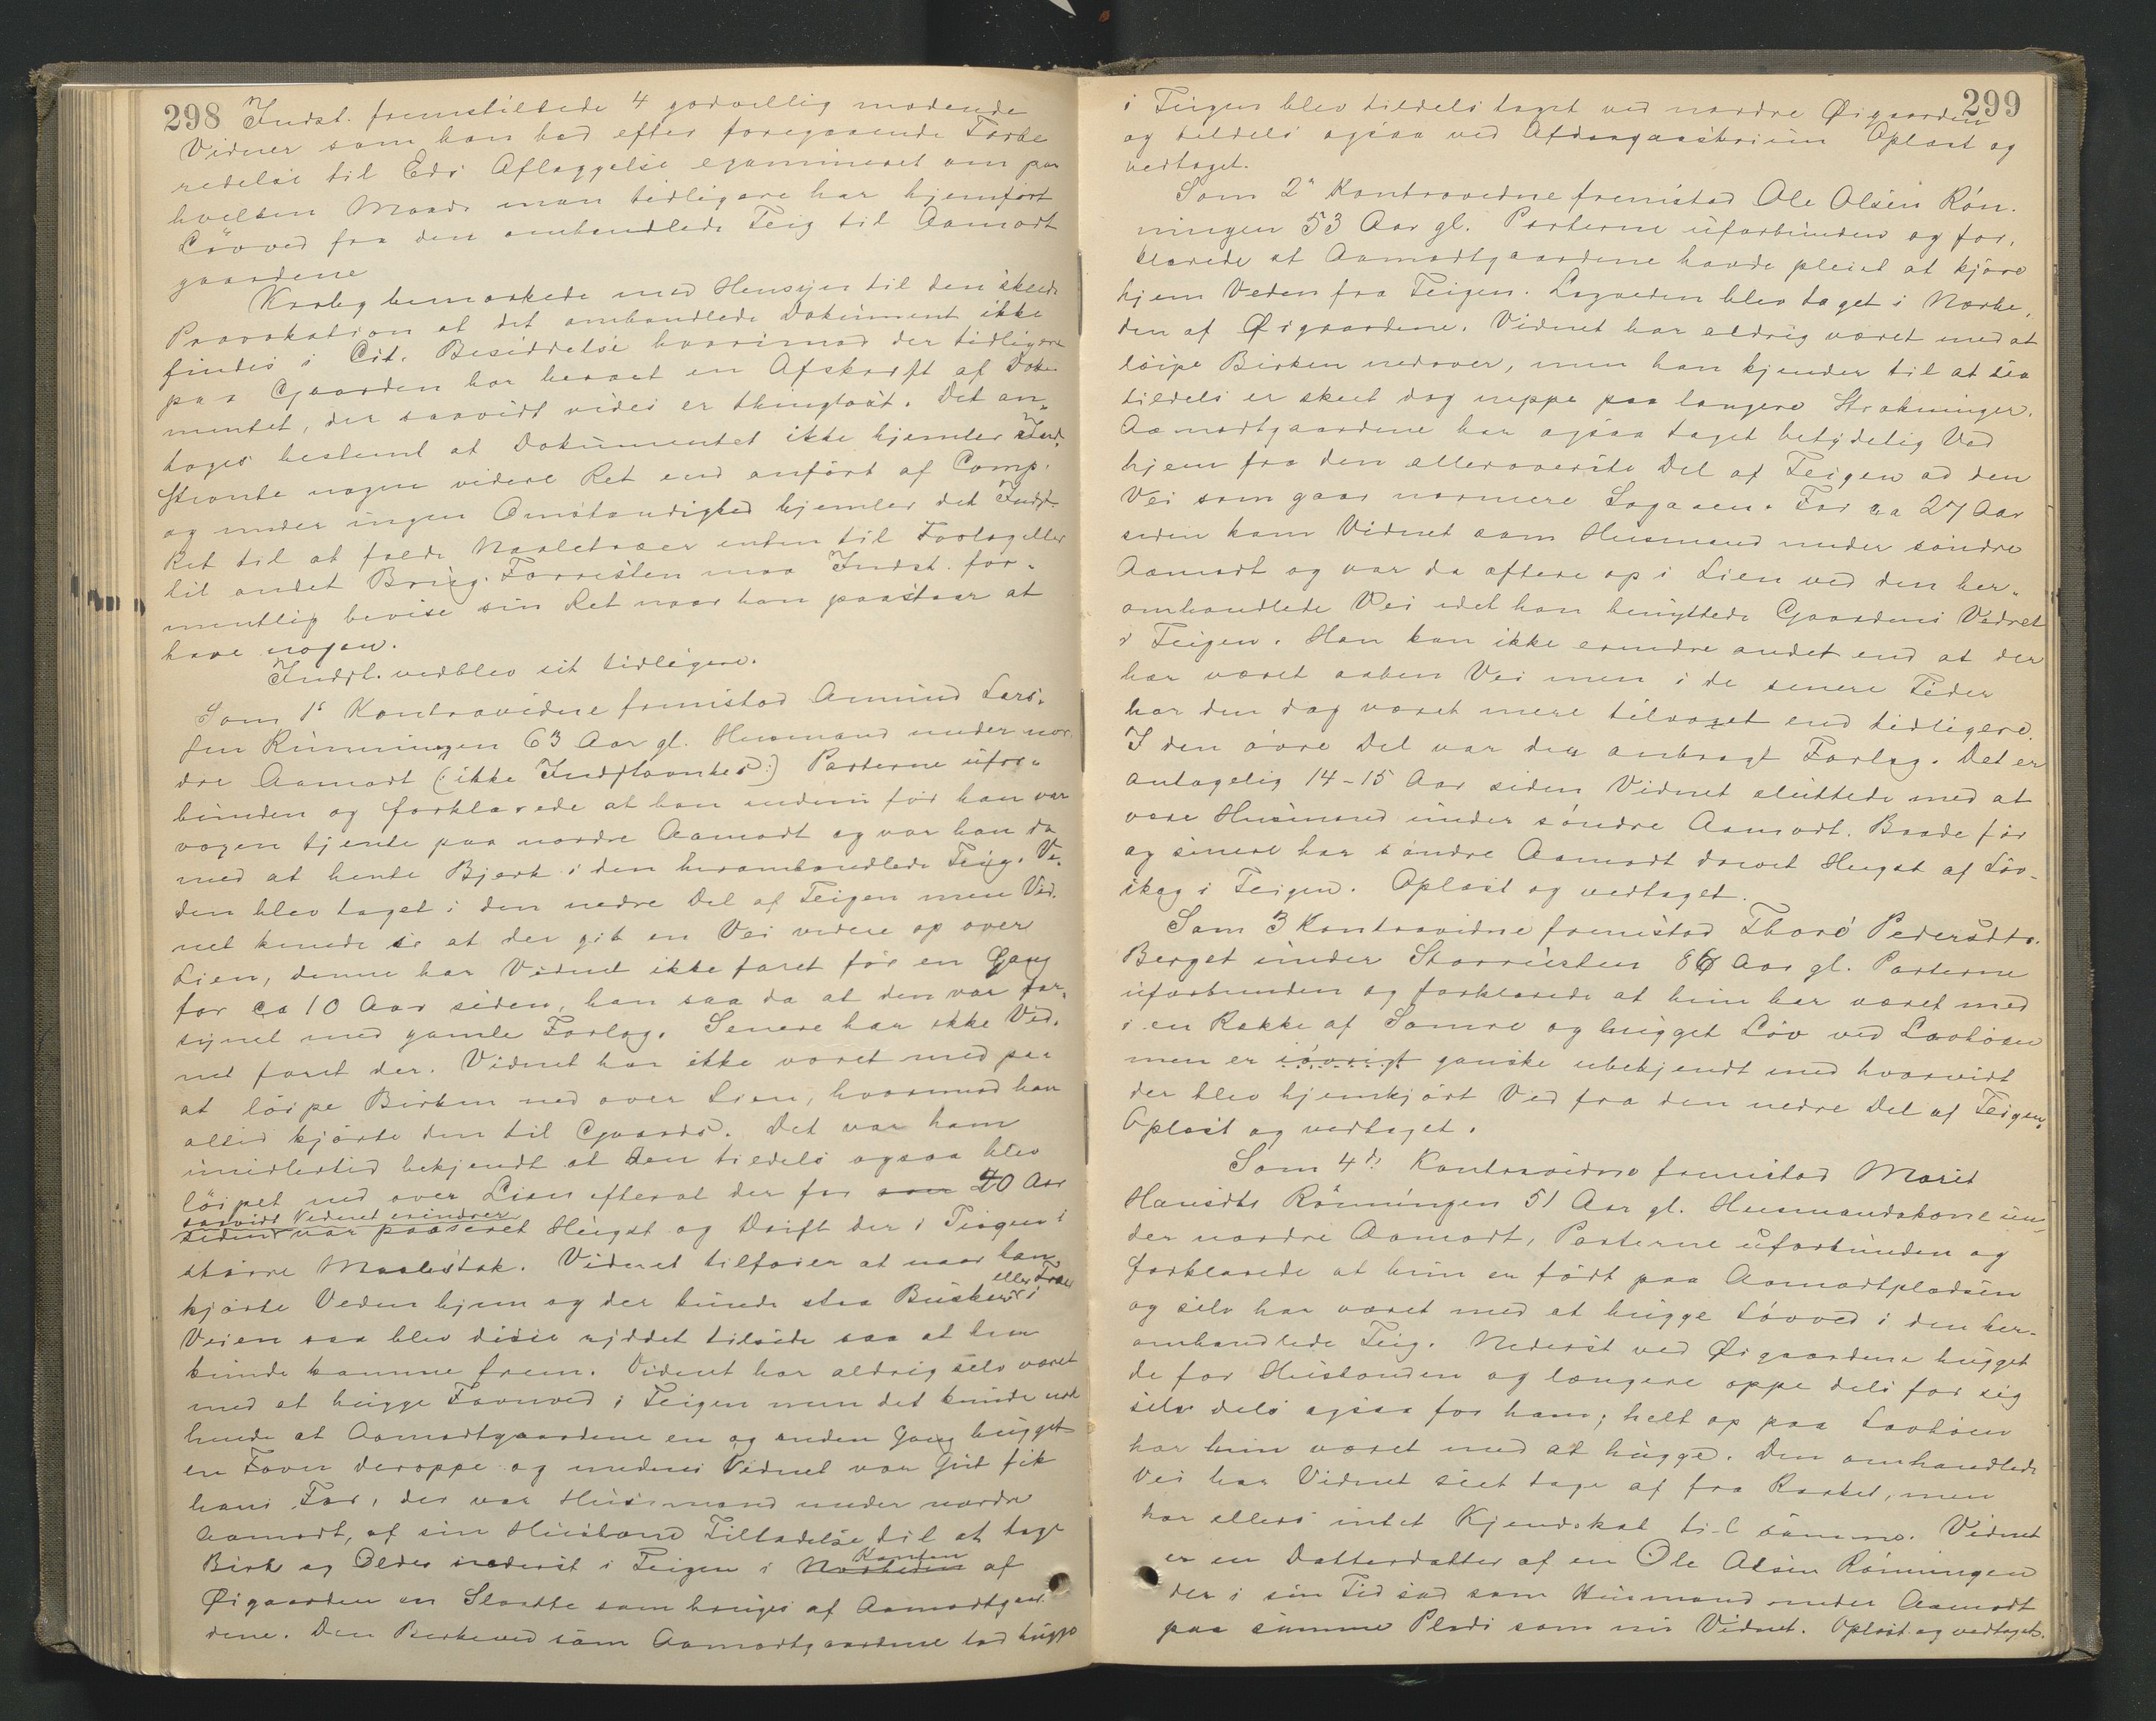 298 Indst. fremstillede 4 godvillig mødende
Vidner som han bad efter foregaaende Forbe
redelse til Eds Aflæggelse examineret om paa
hvilken Maade man tidligere har hjemført
Løvved fra den omhandlede Teig til Aamodt
gaardene
Krabg bemærkede med Hensyn til den skeede
Provokation at det omhandlede Dokument ikke
findes i Cit. Besiddelse hvorimod der tidligere
paa Gaarden har beroet en Afskrift af Doku
mentet, der saavidt vides er thinglæst. Det an„
tages bestemt at Dokumentet ikke hjemler Ind„
stevnte nogen videre Ret end anført af Comp.
og under ingen Omstændighed hjemler det Indst.
Ret til at fælde Naaletræer enten til Forlag eller
til andet Brug. Forresten maa Indst. for„
mentlig bevise sin Ret naar han paastaar at
have nogen.
Indst. vedblev sit tidligere.
Som 1s Kontravidne fremstod Amund Lars„
sen Rønningen 63 Aar gl. Husmand under nor„
dre Aamodt (: ikke Indstevntes :) Parterne ufor„
bunden og forklarede at han endnu før han var
voxen tjente paa nordre Aamodt og var han da
med at hente Bjerk i den heromhandlede Teig. Ve„
den blev taget i den nedre Del af Teigen men Vid„
net kunde se at der gik en Vei videre op over
Lien, denne har Vidnet ikke faret før en Gang
for ca 10 Aar siden, han saa da at den var for„
synet med gamle Forlag. Senere har ikke Vid„
net faret der. Vidnet har ikke været med paa
at løipe Birken ned over Lien, hvorimod han
altid kjørte den til Gaards. Det var ham
imidlertid bekjendt at den tildels ogsaa blev
løipet ned over Lien efterat der for 20 Aar
saavidt Vidnet erindrer
siden var passeret Hugst og Drift der i Teigen i
større Maalestok. Vidnet tilføier at naar han
eller Træer
kjørte Veden hjem og der kunde staa Busker i
Veien saa blev disse ryddet tilside saa at han
kunde komme frem. Vidnet har aldrig selv været
med at hugge Favnved i Teigen men det kunde nok
hende at Aamodtgaardene en og anden Gang hugget
en Favn deroppe og medens Vidnet var Gut fik
hans Far, der var Husmand under nordre
Aamodt, af sin Husbond Tilladelse til at tage
Kanten
Birk og Older nederst i Teigen i Nærheden af
Øigaarden en Slaatte som bruges af Aamodtgaar
dene. Den Birkeved som Aamodtgaardene lod hugge
299
i Teigen blev tildels taget ved nordre Øigaarden
og tildels ogsaa ved Oplæst og
vedtaget.
Som 2t Kontravidne fremstod Ole Olsen Røn„
ningen 53 Aar gl. Parterne uforbunden og for„
klarede at Aamodtgaardene havde pleiet at kjøre
hjem Veden fra Teigen. Lagveden blev taget i Nærhe„
den af Øigaardene. Vidnet har aldrig været med at
løipe Birken nedover, men han kjender til at saa
tildels er skeet dog neppe paa længere Strækninger.
Aamodtgaardene har ogsaa taget betydelig Ved
hjem fra den alleroverste Del af Teigen ad den
Vei som gaar nærmere Sagaaen. For ca 27 Aar
siden kom Vidnet som Husmand under søndre
Aamodt og var da oftere op i Lien ved den her„
omhandlede Vei idet han benyttede Gaardens Vedret
i Teigen. Han kan ikke erindre andet end at der
har været aaben Vei men i de senere Tider
har den dog været mere tilvoxet end tidligere.
I den øvre Del var der anbragt Forlag. Det er
antagelig 14-15 Aar siden Vidnet sluttede med at
være Husmand under søndre Aamodt. Baade før
og senere har søndre Aamodt drevet Hugst af Løv„
skog i Teigen. Oplæst og vedtaget.
Som 3 Kontravidne fremstod Thore Pedersdtr.
Berget under Storrusten 86 Aar gl. Parterne
uforbunden og forklarede at hun har været med
i en Række af Somre og hugget Løv ved Lavkøien
men er iøvrigt ganske ubekjendt med hvorvidt
der blev hjemkjørt Ved fra den nedre Del af Teigen.
Oplæst og vedtaget.
Som 4de Kontravidne fremstod Marit
Hansdtr Rønningen 51 Aar gl. Husmandskone un„
der nordre Aamodt, Parterne uforbunden og
forklarede at hun er født paa Aamodtpladsen
og selv har været med at hugge Løvved i den her„
omhandlede Teig. Nederst ved Øigaardene hugget
de for Husbonden og længere oppe dels for sig
selv dels ogsaa for ham; helt op paa Lavkøien
har hun været med at hugge. Den omhandlede
Vei har Vidnet seet tage af fra Raaket, men
har ellers intet Kjendskab til samme. Vidnet
er en Datterdatter af en Ole Olsen Rønningen
der i sin Tid sad som Husmand under Aamodt
paa samme Plads som nu Vidnet. Oplæst og vedtaget.